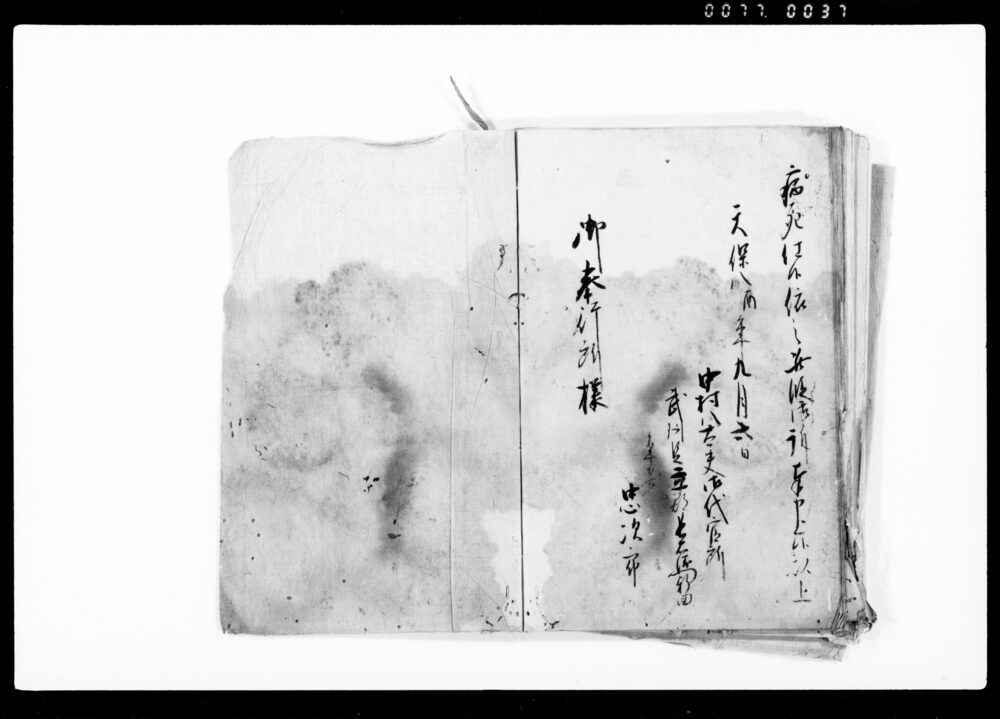 0077. 0037
病死仕候依之此段御訴奉申上候以上
天保八酉年九月弐日
中村八太夫御代官所
武州足立郡
忠次郎
御奉行所様